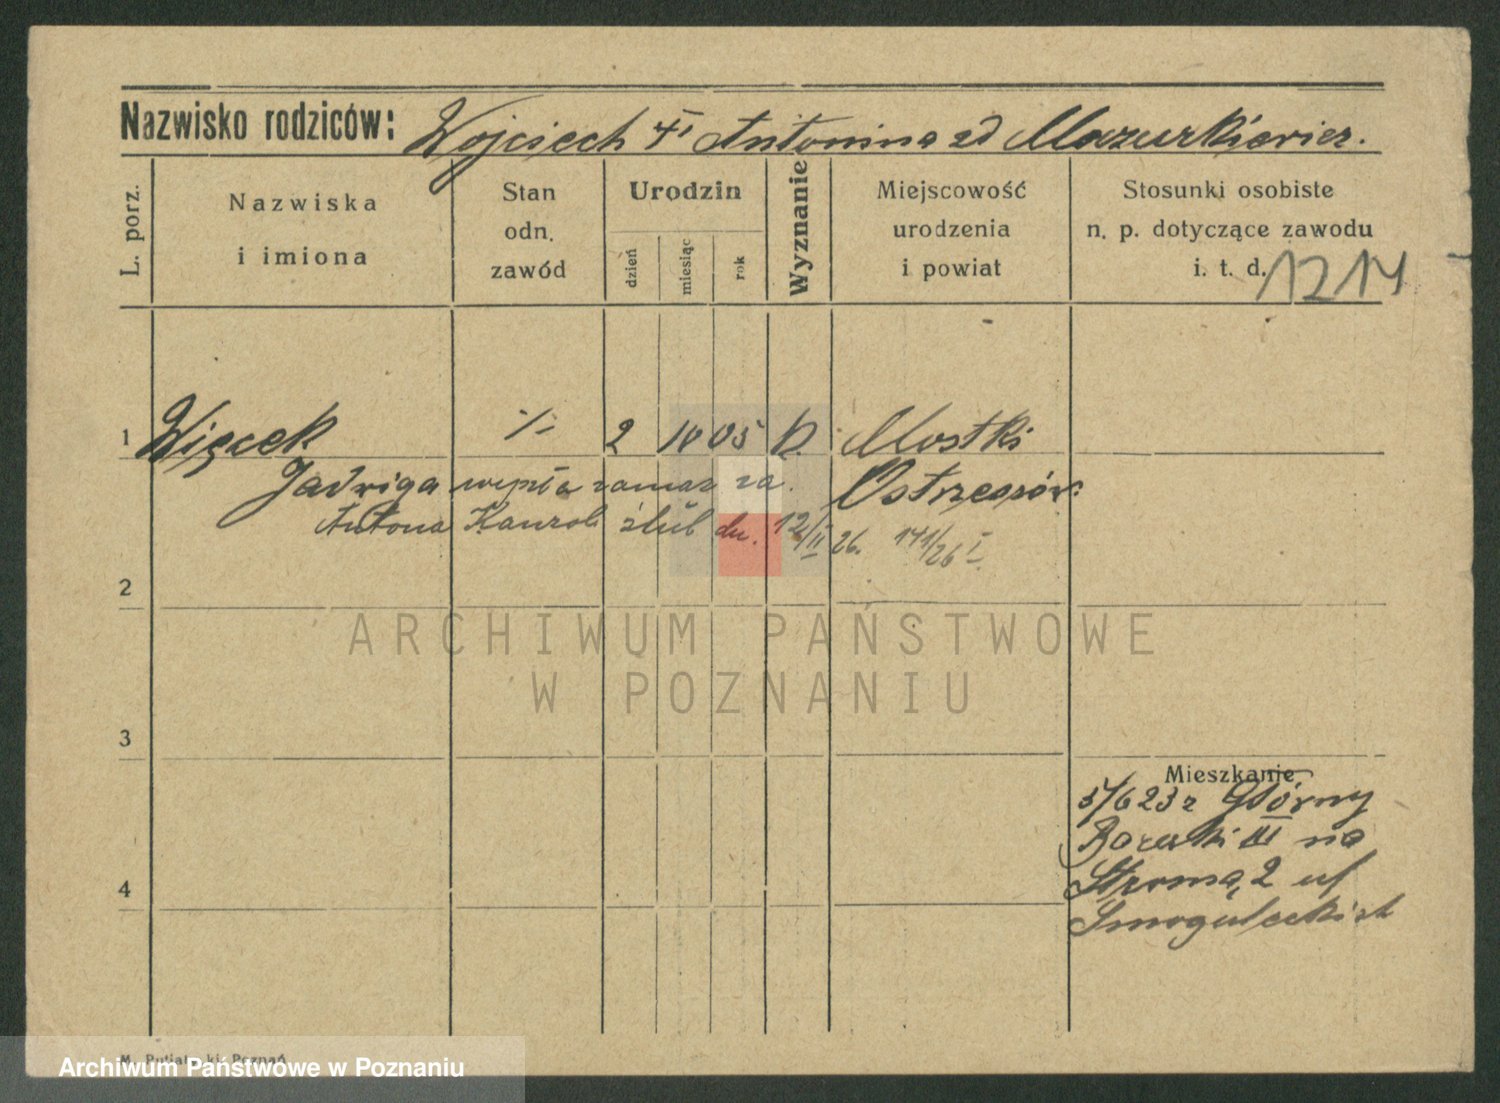 Nazwisko rodziców: Wojciech i Antonina zd Mazurkiewicz.
L. porz.
Nazwiska
i imiona
Stan
odn.
zawód
Urodzin
dzień
miesiąc
rok
Wyznanie
Miejscowość
urodzenia
i powiat
Stosunki osobiste
n. p. dotyczące zawodu
i. t. d.
1214
1 Więcek 2 10 05 k. Mostki
Jadwiga wyszła zamąż za Ostrzeszów
Antona ślub dn. 12/II 26. 141/26 I
2
3
4
Mieszkanie
5/6 23 z Górny
III na
Stroma, 2 uf
ARCHIWUM PAŃSTWOWE
W POZNANIU
Poznań
Archiwum Państwowe w Poznaniu